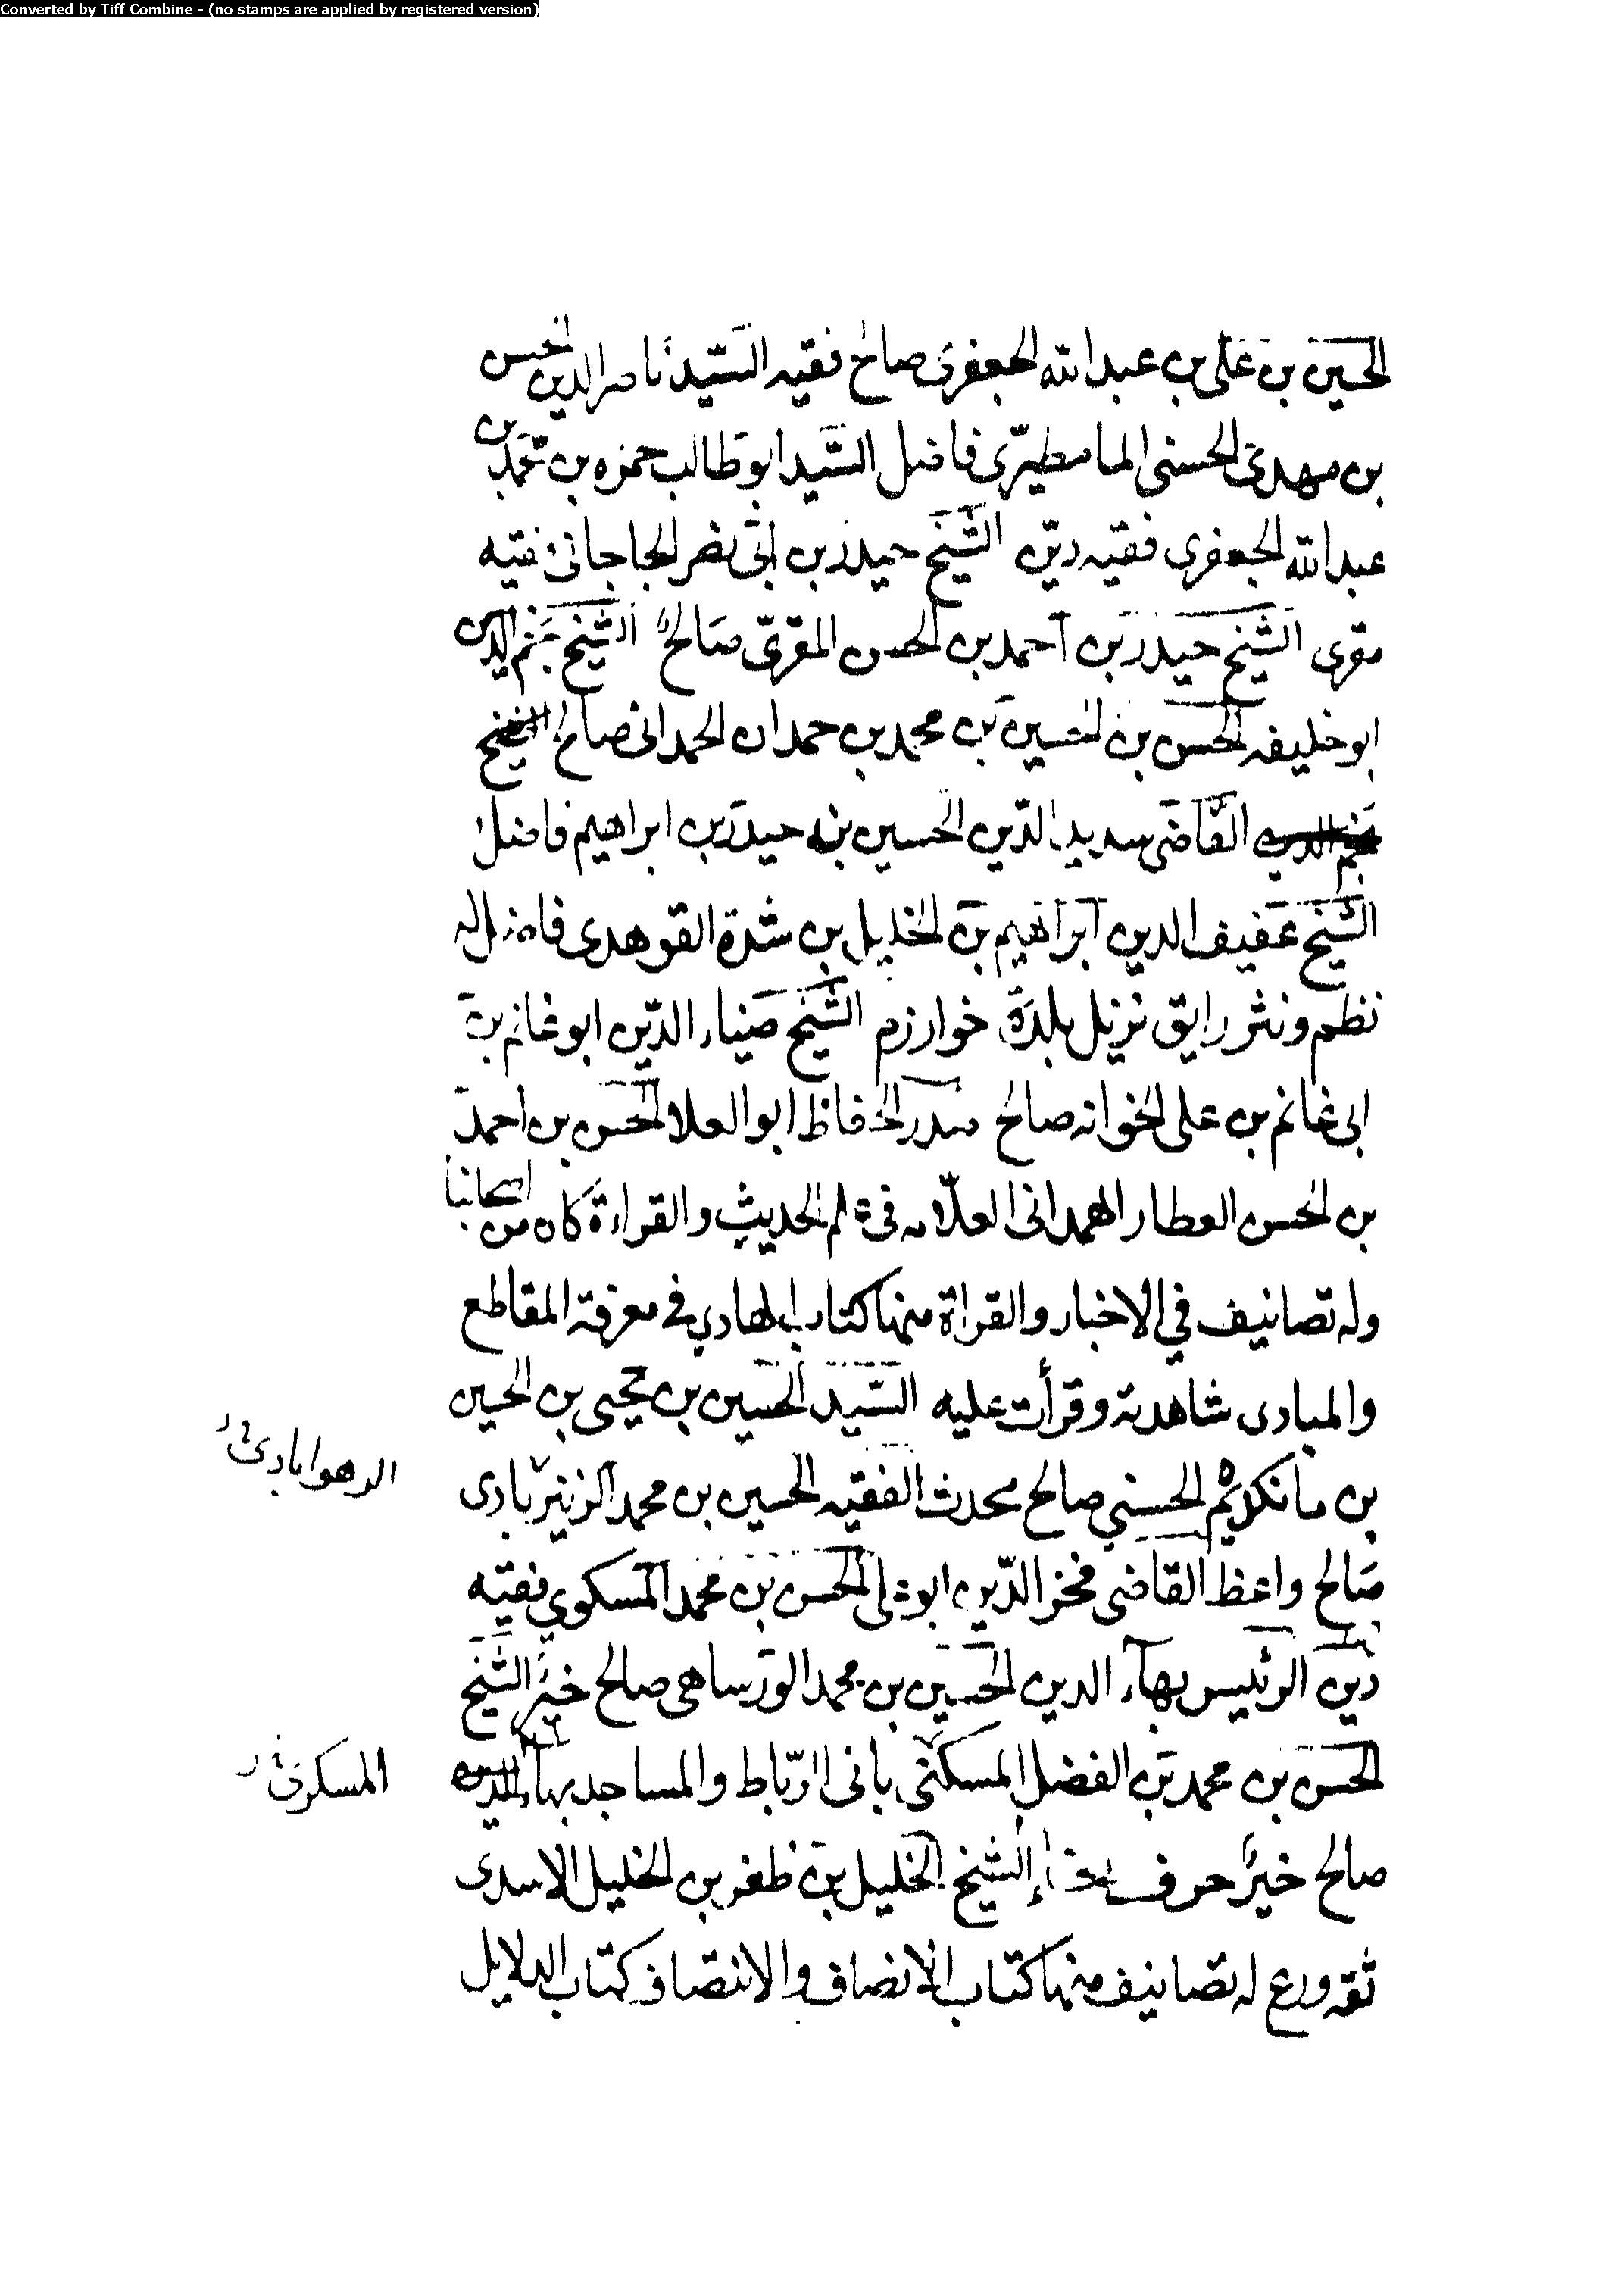 Converted by Tiff Combine - (no stamps are applied by registered version)
الحسين بن على بن عبدالله الجعفرى صالح فقيه السّيد ناصر الدين الحسن
بن مهدى الحسنى المامطيرّى فاضل السّيد ابو طالب حمزه بن محمد بن
عبدالله الجعفرى فقيه ديّن الشّيخ حيدر بن ابى نصر الجاجانى فقيه
مقرى الشّيخ حيدر بن احمد بن الحسن المقرىّ صالح الشّيخ نجم الدين
ابو خليفه الحسن بن الحسين بن محمد بن حمدان الحمدانى صالح الشيخ
نجم الدين القاضى سديد الدّين الحسين بن حيدر بن ابراهيم فاضل
الشّيخ عفيف الدين ابراهيم بن الخليل بن شدة القوهدى فاضل له
نظم و نثر رايق نزيل بلدة خوارزم الشّيخ ضياء الدّين ابو غانم بن
ابى غانم بن على الخوانه صالح صدر الحفاظ ابو العلا الحسن بن احمد
بن الحسن العطار الهمدانى العلّامه فى علم الحديث والقراءة كان من اصحابنا
وله تصانيف في الاخبار والقراة منها كتاب الهادى فى معرفة المقاطع
والمبادى شاهدته وقرأت عليه السّيد الحسين بن يحيى بن الحسين
بن مانكديم الحسنى صالح محدث الفقيه الحسين بن محمد
الدهوابادى
صالح واعظ القاضى فخر الدّين ابو على الحسن بن محمد المسكوى فقيه
دين الرئيس بهاء الدين الحسين بن محمد الورساهى صالح خيّر الشّيخ
الحسن بن محمد بن الفضل المسكنى بانى الرّباط والمساجد بهاء الدين
المسكرى
صالح خيّر حرف الشيخ الخليل بن ظفر بن الخليل الاسدى
ثقه ورع له تصانيف منها كتاب الانصاف والانتصاف كتاب الدلايل